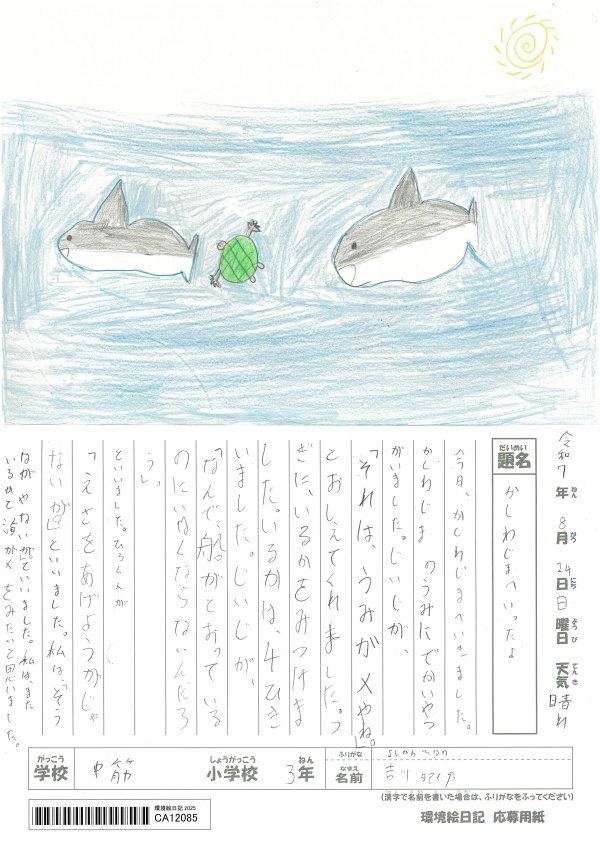 令和7年8月24日日曜日 天気晴れ
題名 かしわじまへいったよ
今日、かしわじまへいきました。
かしわじまのうみにでかいやつ
がいました。じいじが、
「それは、うみがメやね」
とおしえてくれました。つ
ぎに、いるかをみつけま
した。いるかは、4ひき
いました。じいじが、
「なんで、船がとおっている
のにいなくならないんだろ
う」
といいました。ひろくんが
「えさをあげようがじゃ
ないが」といいました。私は、「そう
ながやないが」といいました。私は、また
いるかと海がメをみたいと思いました。
がっこう 学校 中筋 しょうがっこう 小学校 3年 ねん
ふりがな よしかわ
なまえ 名前 吉川
(漢字で名前を書いた場合は、ふりがなをふってください)
環境絵日記2025
CA12085
環境絵日記 応募用紙